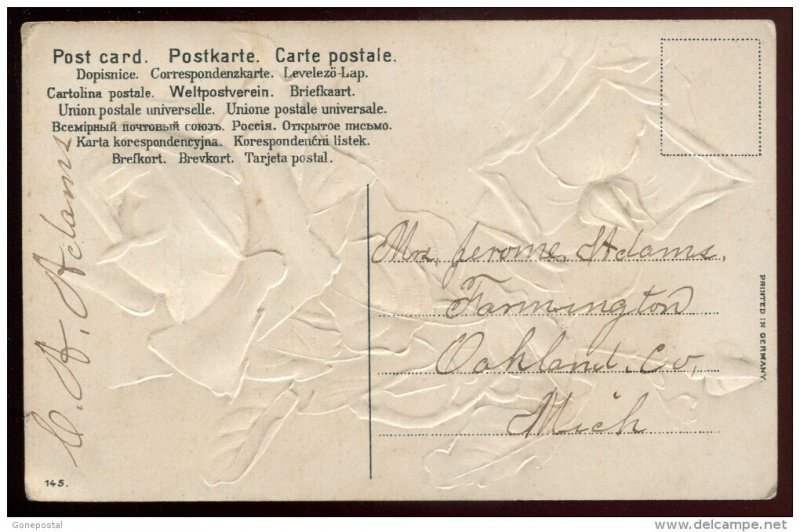 Post card. Postkarte. Carte postale.
Dopisnice. Correspondenzkarte. Levelező-Lap.
Cartolina postale. Weltpostverein. Briefkaart.
Union postale universelle. Unione postale universale.
Всемірный почтовый союзъ. Россія. Открытое письмо.
Karta korespondencyjna. Korespondenční listek.
Brefkort. Brevkort. Tarjeta postal.
C. A. Adams
Mrs. Jerome. St Adams.
Farmington
Oakland. Co.
Mich
PRINTED IN GERMANY.
145.
Gonepostal
delcampe.net